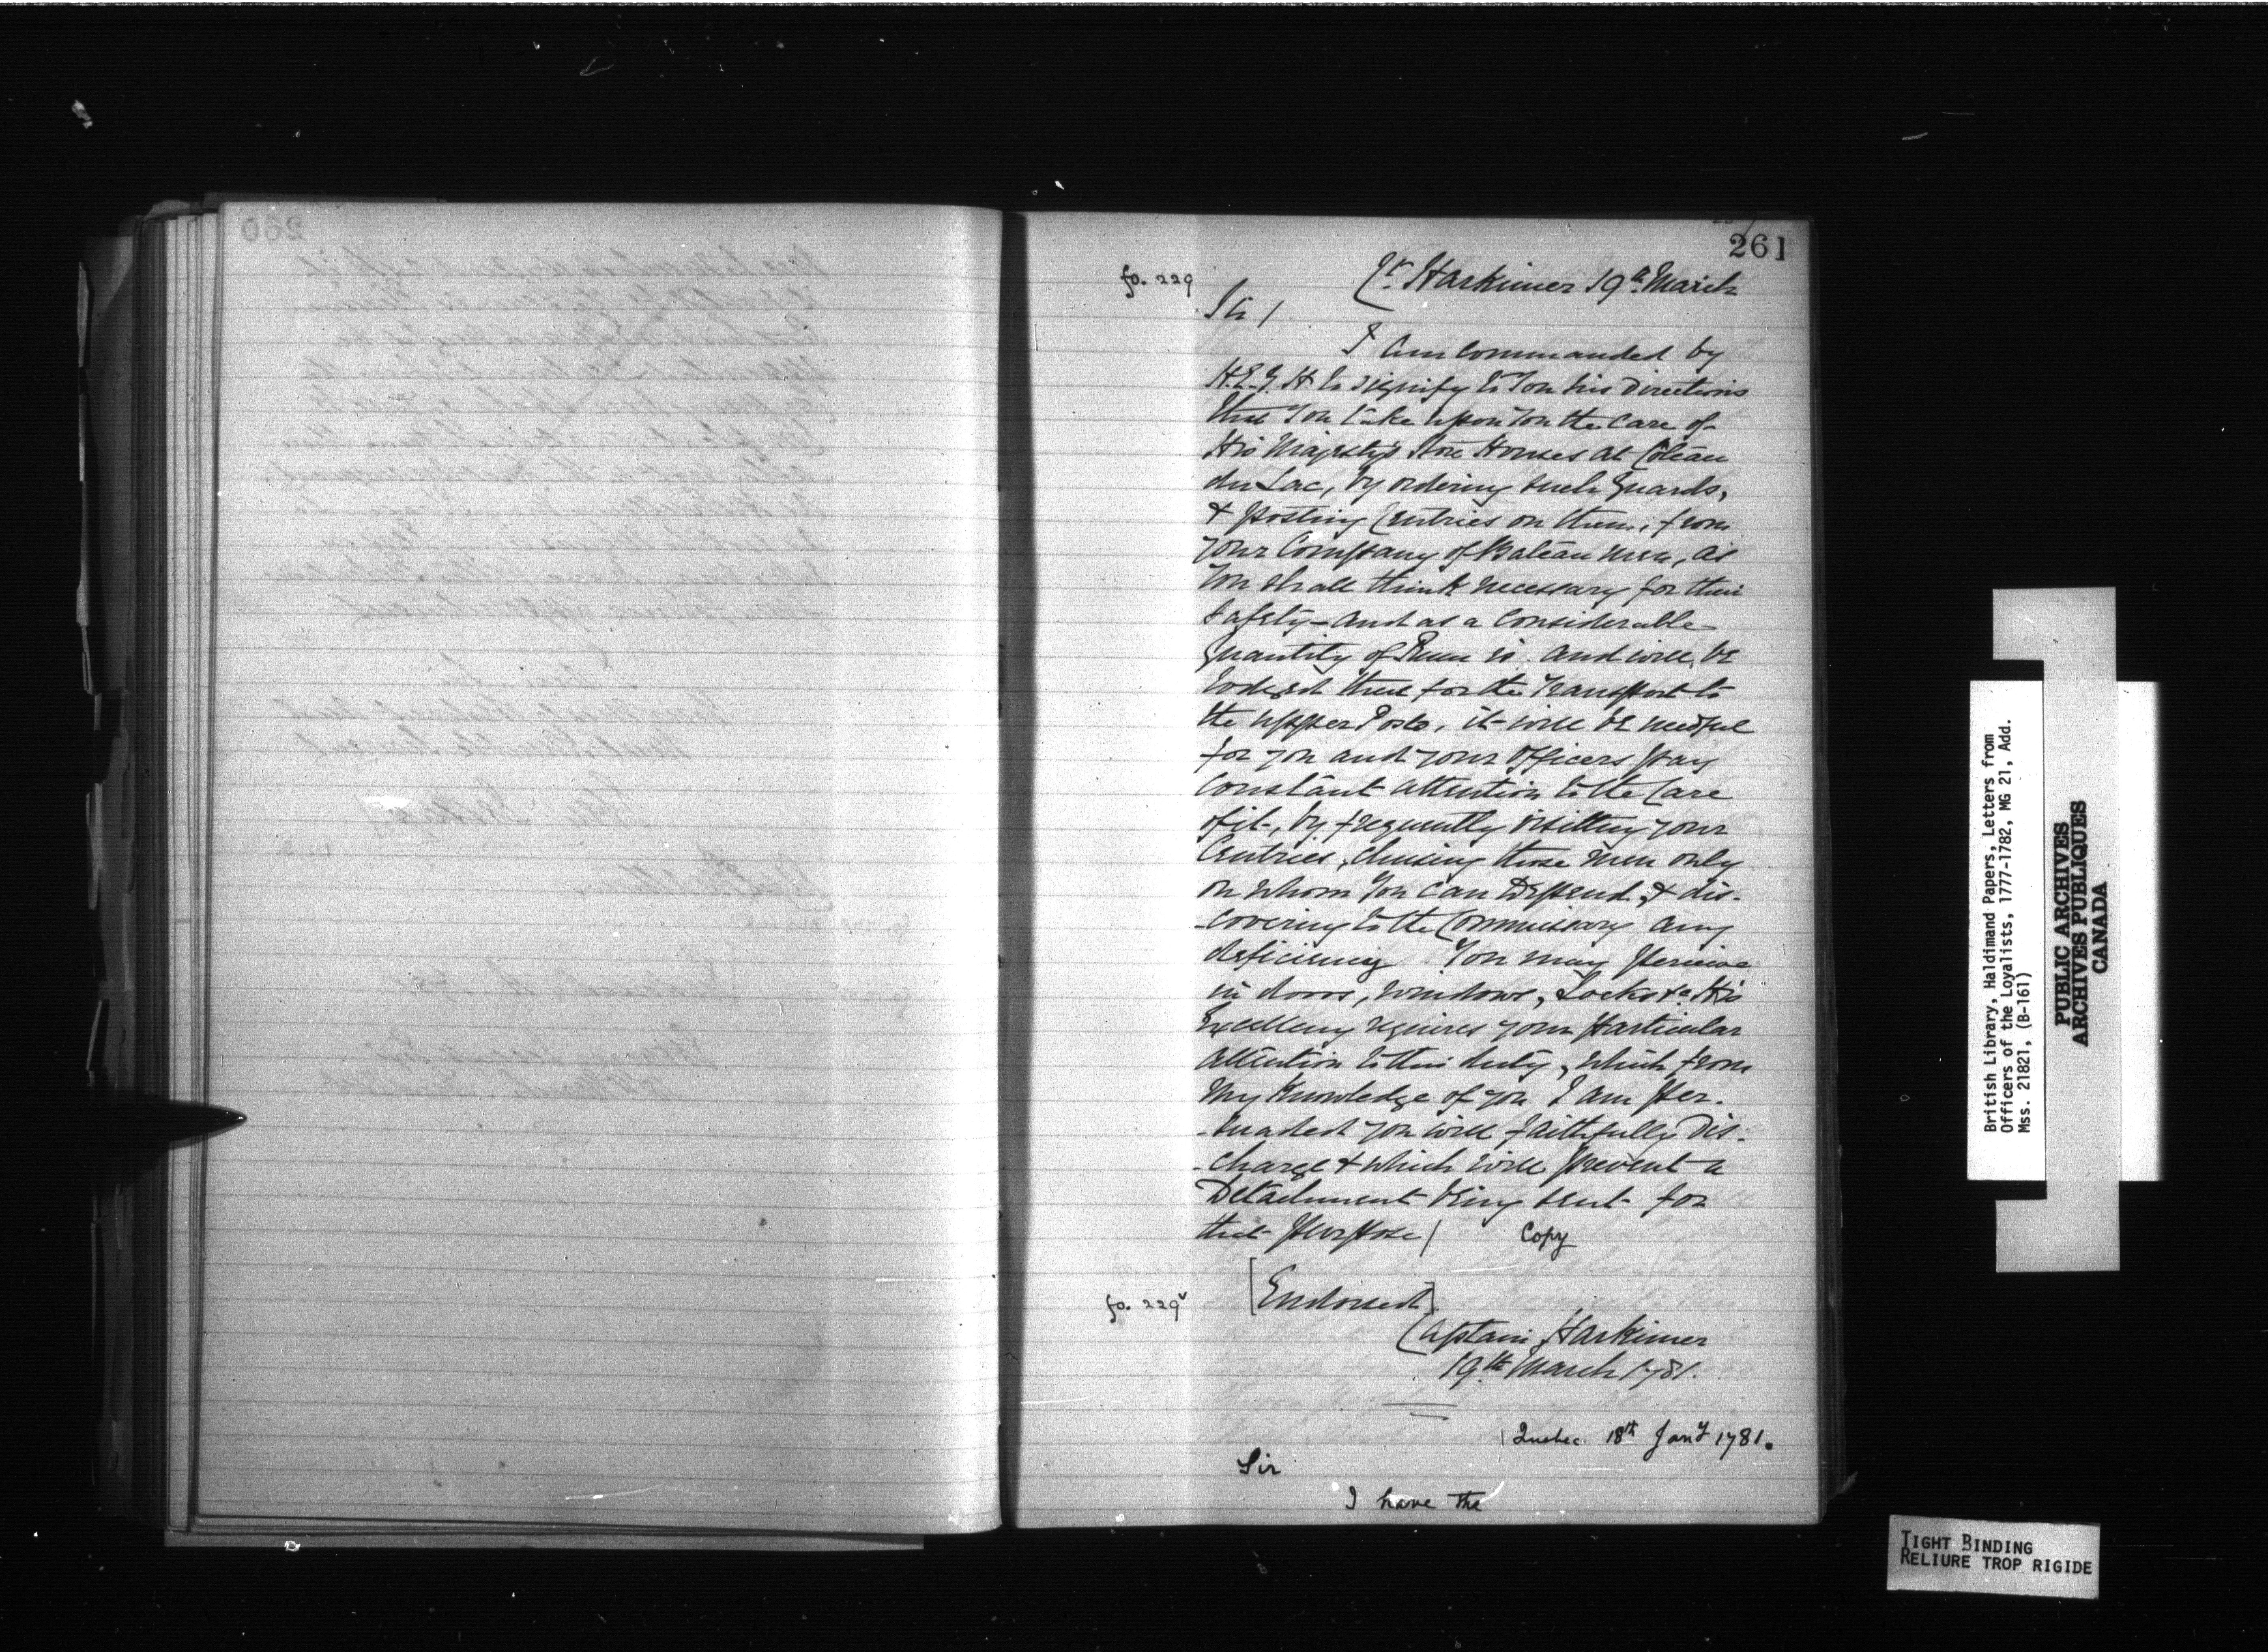 261
fo. 229
Cr. Harkimer 19th March
Sir /
I am commanded by
H.E.G.H to signify to You his Directions
that You take upon You the Care of
His Majesty's Store Houses at Côteau
du Lac, by ordering such Guards,
& posting Centries on them, from
your Company of Bateau men, as
You shall think necessary for their
safety - and as a considerable
Quantity of Rum is and will be
lodged there for the Transport to
the upper Posts, it will be needful
for you and your officers pay
constant attention to the Care
of it, by frequently visitting your
Centries, chusing those men only
on whom You can Depend, & dis-
-covering to the Commissary any
deficiency You may perceive
in doors, windows, Locks &c His
Excellency requires your particular
attention to this duty, which from
my Knowledge of you I am per-
-suaded you will faithfully Dis-
-charge & which will prevent a
Detachment being sent for
that purpose / Copy
fo. 229v
[Endorsed].
Captain Harkimer
19th March 1781.
Quebec 18th Jany 1781.
Sir
I have the
British Library, Haldimand Papers, Letters from
Officers of the Loyalists, 1777-1782, MG 21, Add.
Mss. 21821, (B-161)
PUBLIC ARCHIVES
ARCHIVES PUBLIQUES
CANADA
TIGHT BINDING
RELIURE TROP RIGIDE